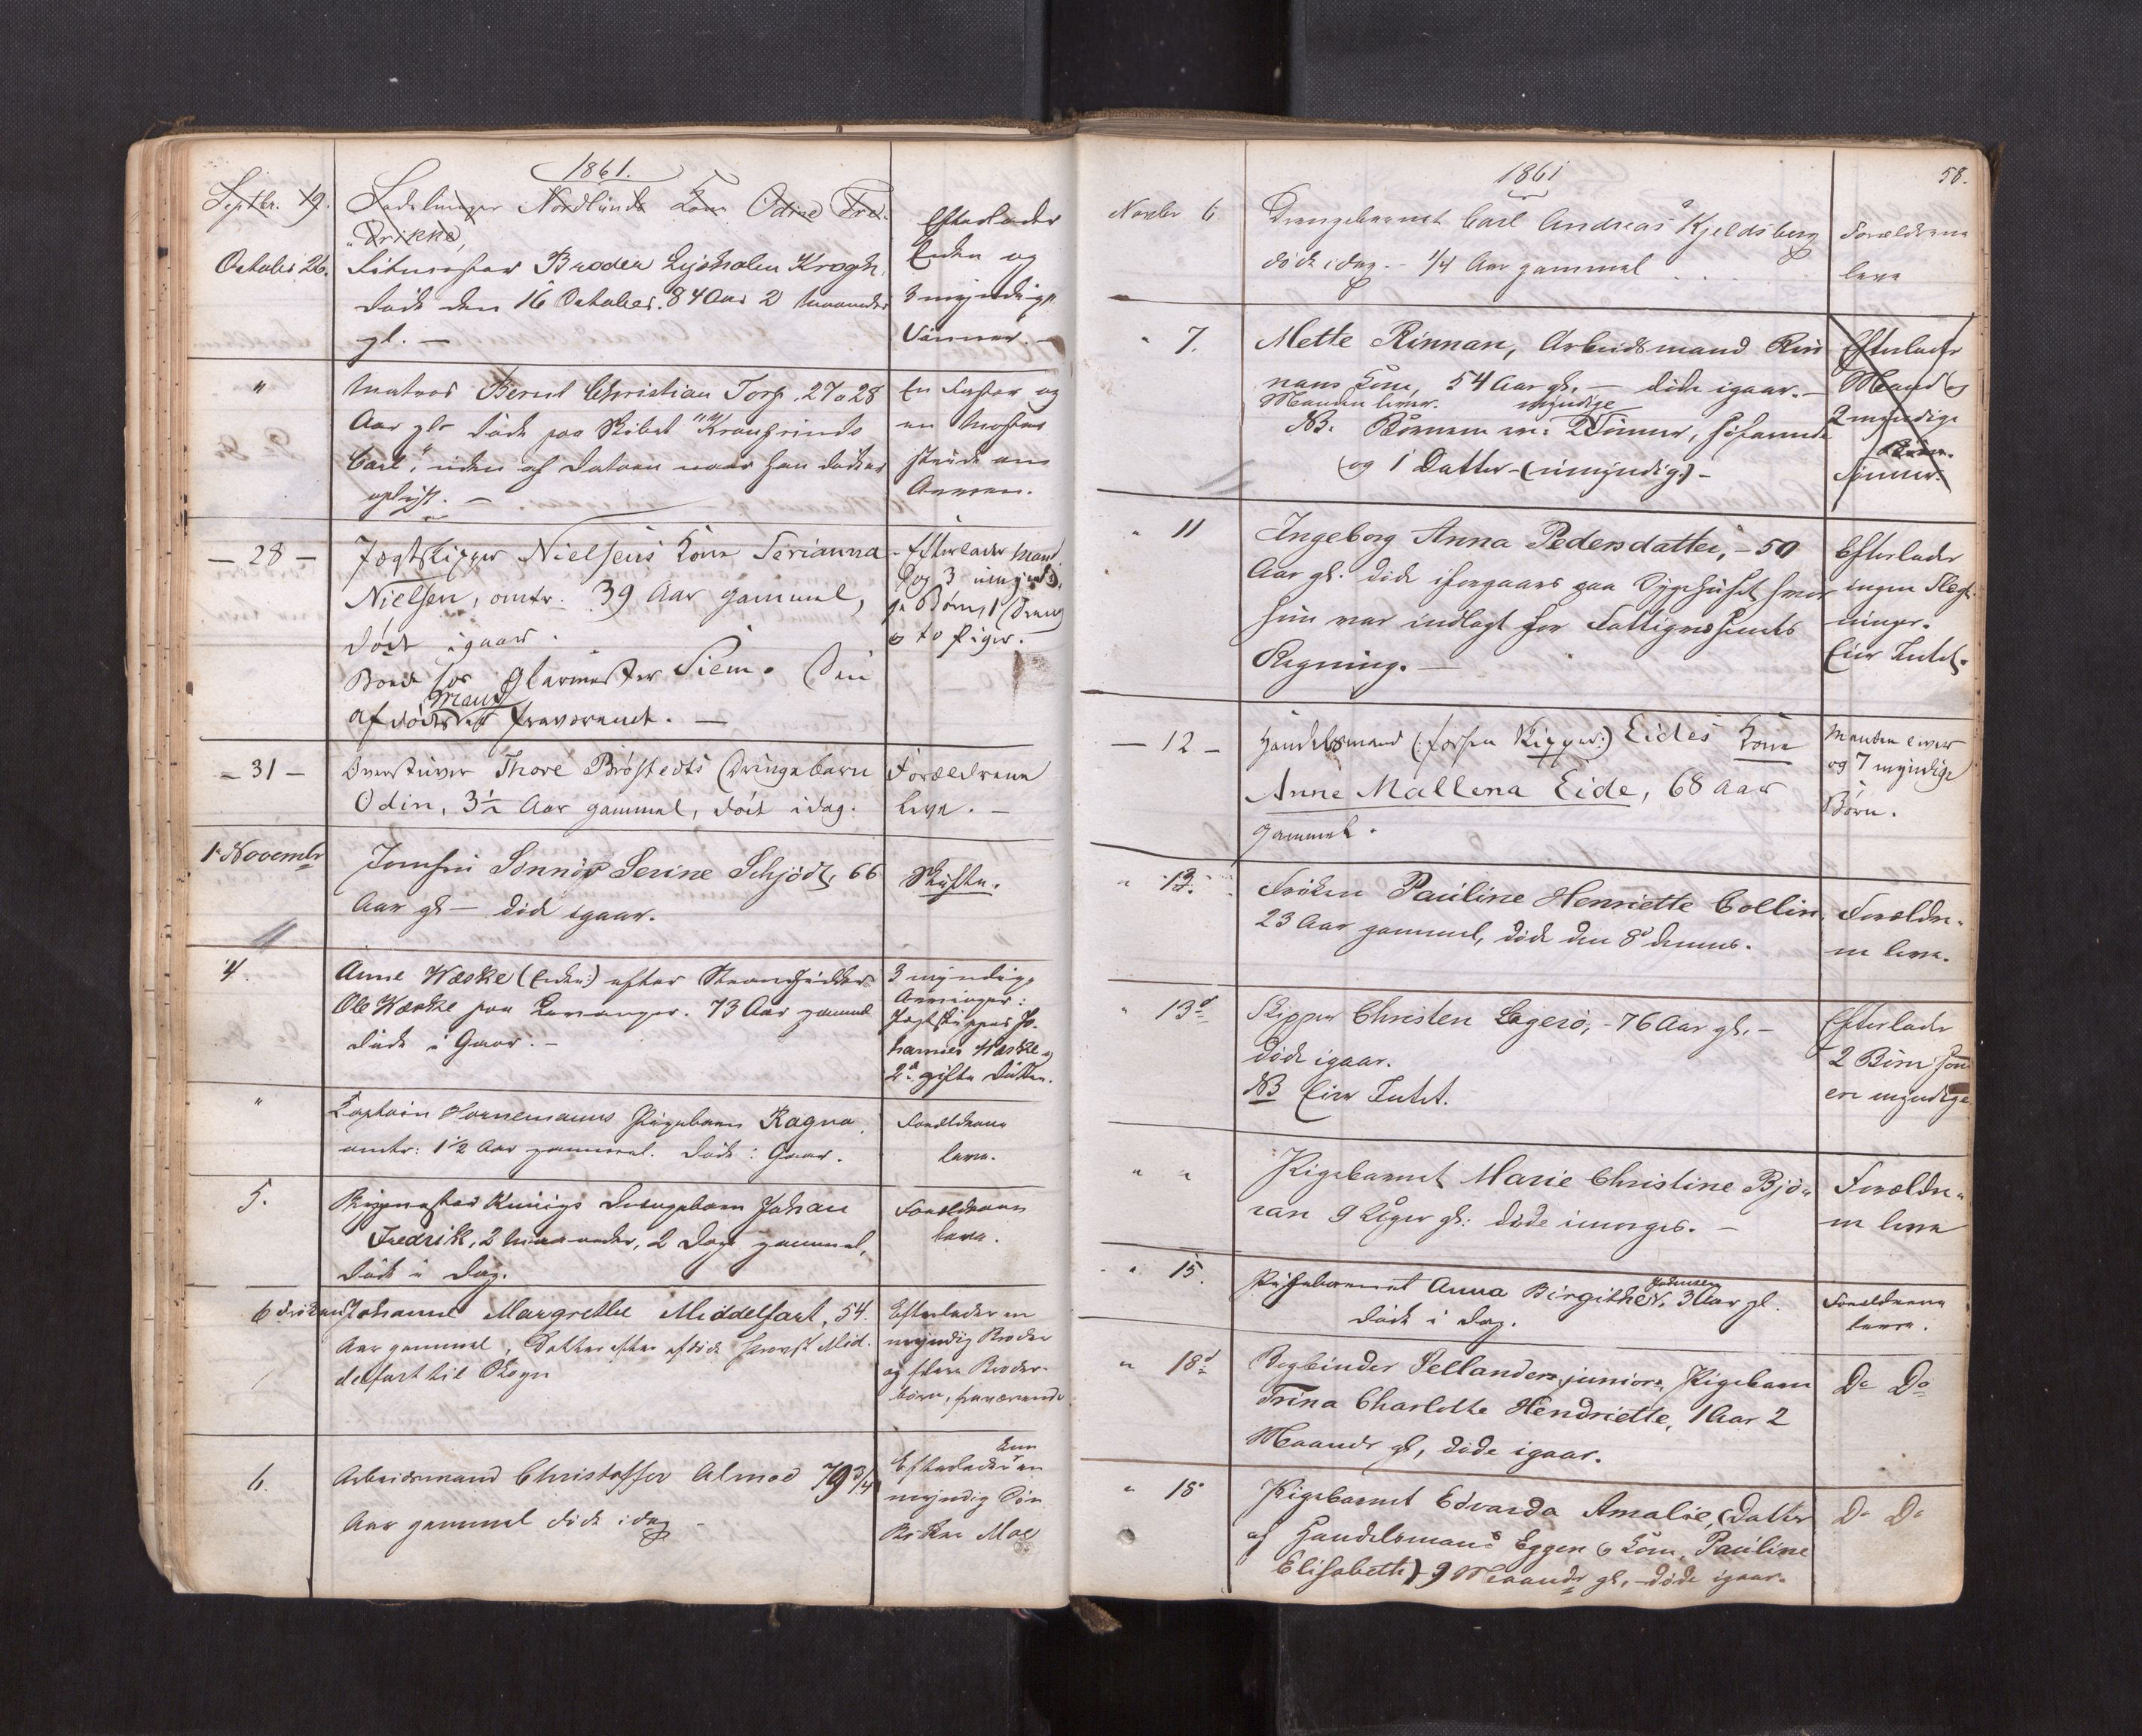 1861.
Septbr. 19.
Sadelmager Nordlunds Kone Odine Fre-
drikke,
October 26.
Broder Lysholm Krogh,
døde den 16 October. 84 Aar 2 Maaneder
gl. —
Efterlader
Enke og
3 myndige
Sønner. —
"
Matros Bernt Christian Torp, 27 a 28
Aar gl. døde paa Skibet "Kronprinds
Carl", uden at Datoen naar han døde er
oplyst. —
En Faster og
en Moster
— 28 —
Jægtskipper Nielsens Kone Serianna
Nielsen, omtr. 39 Aar gammel,
død igaar.
Boede hos Glarmester Siem. Den
afdødes Mand fraværende. —
Efterlader Mand
og 3 umyndi-
ge Børn, 1 Dreng
og to Piger. —
— 31 —
Thore Brøstedts Drengebarn
Odin, 3½ Aar gammel, død idag.
Forældrene
leve. —
1. Novembr
Jomfru Sønnøv Serine Schjødt, 66
Aar gl. — døde igaar.
Skifte.
4.
Anne Wæske (Enke) efter Strandsidder
Ole Wæske paa Levanger. 73 Aar gammel
døde i Gaar. —
3 myndige
Arvinger:
Jægtskipper Jo-
hannes Wæske og
2de gifte Døttre.
"
Captain Hornemanns Pigebarn Ragna,
omtr: 1½ Aar gammel. døde i Gaar.
Forældrene
leve.
5.
Königs Drengebarn Johan
Fredrik, 2 Maaneder, 2 Dage gammel,
døde i Dag.
Forældrene
leve.
6 Frøken Johanne Margrethe Middelfart, 54.
Aar gammel, Datter efter afdøde Provst Mid-
delfart til Skogn
Efterlader en
myndig Broder
og flere Broder-
børn, fraværende.
6.
Arbeidsmand Christoffer Almoe 79 3/4
Aar gammel døde idag —
Efterlader kun en
myndig Søn
Moe
1861
58.
Novbr 6.
Drengebarnet Carl Andreas Kjeldsberg
døde idag. — 1/4 Aar gammel
Forældrene
leve
" 7.
Mette Rinnan, Arbeidsmand Rin
nans Kone, 54 Aar gl. — døde igaar. —
Manden lever. myndige
NB. Børnene ere: 2 Sønner, søfarende
og 1 Datter — (umyndig) —
Efterlader
Mand og
2 myndige
Børn.
Sønner.
" 11
Ingeborg Anna Pedersdatter, — 50
Aar gl. døde iforgaars paa Sygehuset hvor
hun var indlagt for Fattigvæsenets
Regning. —
Efterlader
ingen Slægt-
ninger.
Eier Intet.
— 12 —
Handelsmand (: forhen Skipper:) Eides Kone
Anne Mallena Eide, 68 Aar
gammel.
Manden lever
og 7 myndige
Børn.
" 13.
Frøken Pauline Henriette Collin,
23 Aar gammel, døde den 8de dennes.
Forældre-
ne leve.
" 13d
Skipper Christen Lagerø, — 76 Aar gl. —
døde igaar.
NB Eier Intet.
Efterlader
2 Børn som
ere myndige
" "
Pigebarnet Marie Christine Bjø-
ran 9 Uger gl: døde imorges. —
Forældre-
ne leve
" 15.
Pigebarnet Anna Birgithe Johnsen, 3 Aar gl.
døde i Dag.
Forældrene
leve.
" 18d
Bogbinder Sellanders junior, Pigebarn
Trina Charlotte Hendriette, 1 Aar 2
Maander gl, døde igaar.
Do Do
" 18
Pigebarnet Edvarda Amalie, (Datter
af Handelsmand Eggen og Kone, Pauline
Elisabeth) 9 Maander gl, — døde igaar.
Do Do